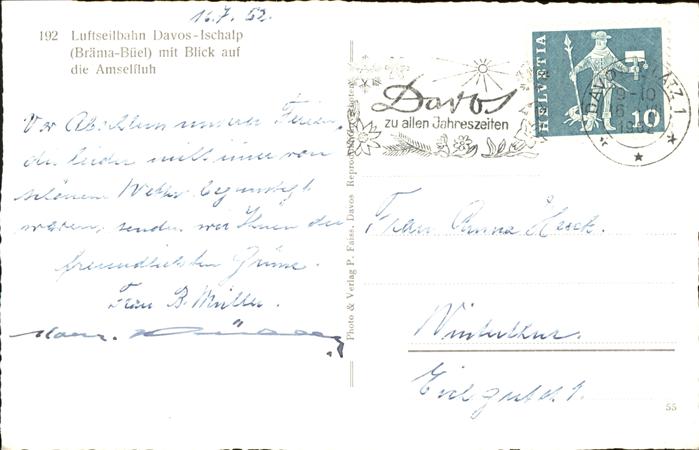 16.7.62.
192 Luftseilbahn Davos-Ischalp
(Bräma-Büel) mit Blick auf
die Amselfluh
Vor Abschluss unserer Ferien,
die leider nicht immer von
schönem Wetter begünstigt
waren, senden wir Ihnen die
freundlichsten Grüsse.
Frau B. Müller.
Photo & Verlag P. Faiss, Davos
HELVETIA
10
Davos
zu allen Jahreszeiten
DAVOS PLATZ 1
9-10
Frau Anna
Winterthur.
55